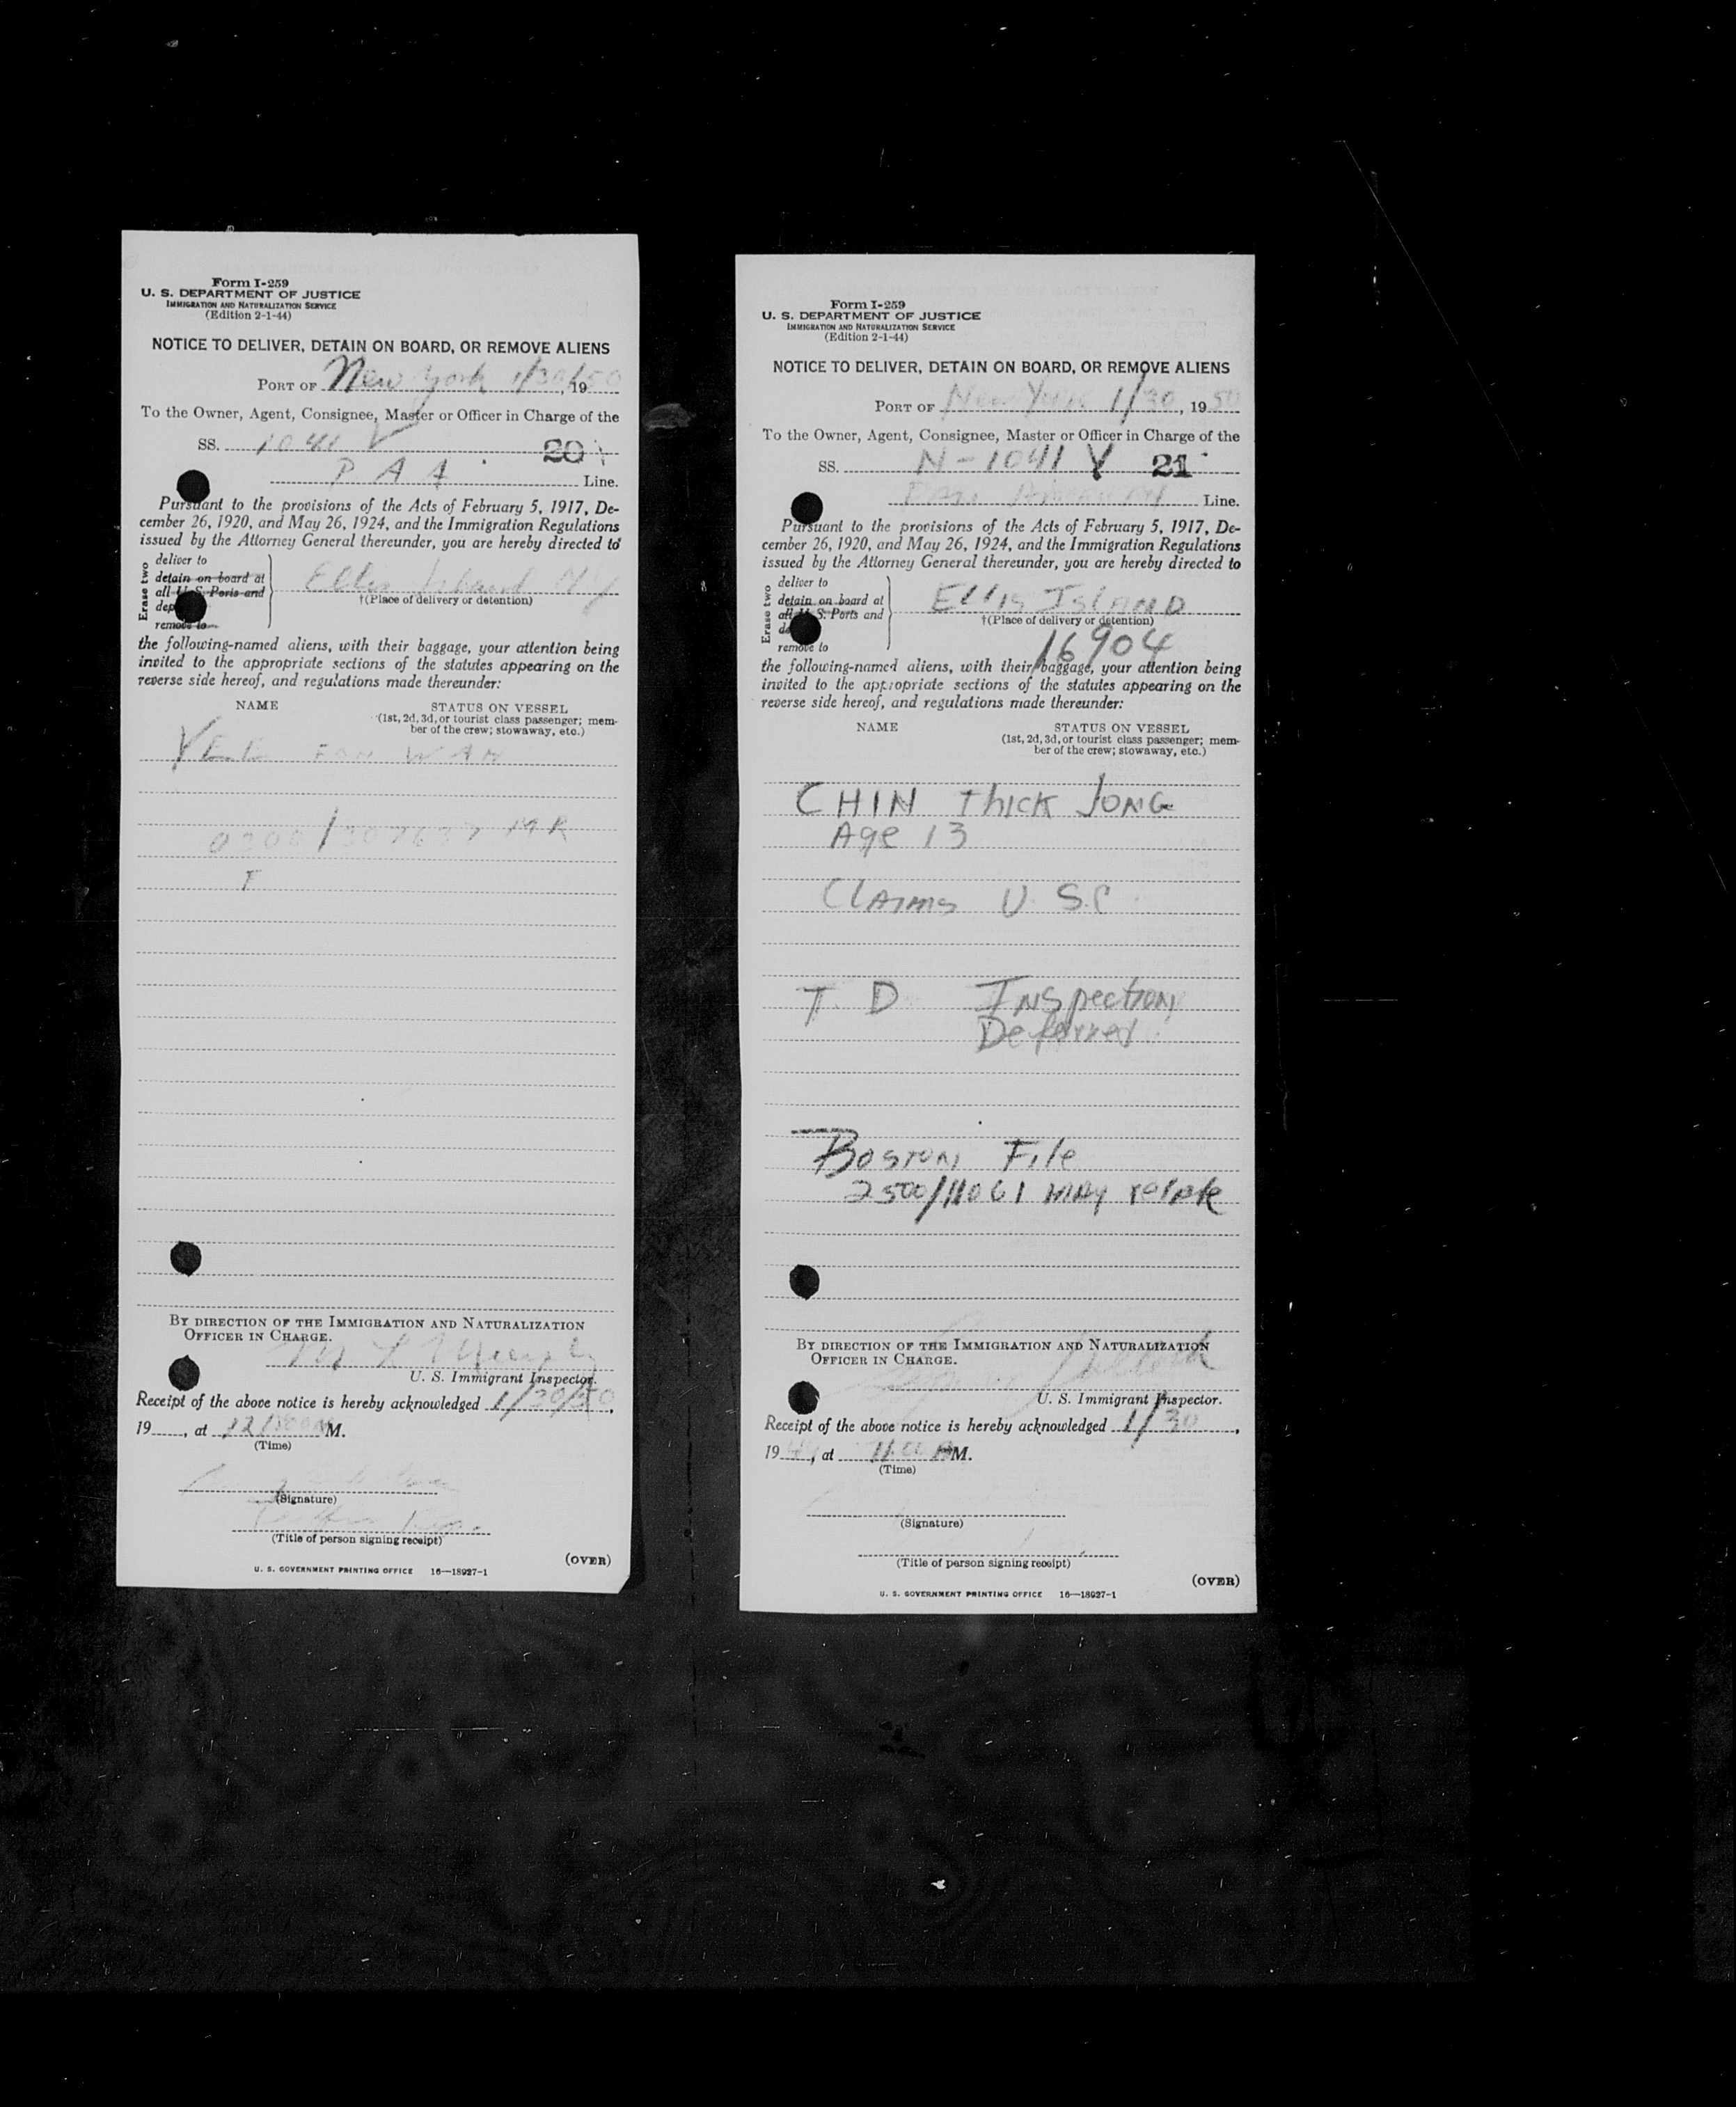 Form I-259
U. S. DEPARTMENT OF JUSTICE
IMMIGRATION AND NATURALIZATION SERVICE
(Edition 2-1-44)
NOTICE TO DELIVER, DETAIN ON BOARD, OR REMOVE ALIENS
PORT OF New York 1/30/50, 19
To the Owner, Agent, Consignee, Master or Officer in Charge of the
SS. 1041 V 20
P A A Line.
Pursuant to the provisions of the Acts of February 5, 1917, De-
cember 26, 1920, and May 26, 1924, and the Immigration Regulations
issued by the Attorney General thereunder, you are hereby directed to
Erase two
deliver to
detain on board at
all U. S. Ports and
dep
remove to
Ellis Island NY
†(Place of delivery or detention)
the following-named aliens, with their baggage, your attention being
invited to the appropriate sections of the statutes appearing on the
reverse side hereof, and regulations made thereunder:
NAME STATUS ON VESSEL
(1st, 2d, 3d, or tourist class passenger; mem-
ber of the crew; stowaway, etc.)
YEE WAN
MR
F
BY DIRECTION OF THE IMMIGRATION AND NATURALIZATION
OFFICER IN CHARGE.
Murphy
U. S. Immigrant Inspector.
Receipt of the above notice is hereby acknowledged 1/30/50,
19, at M.
(Time)
(Signature)
(Title of person signing receipt)
(OVER)
U. S. GOVERNMENT PRINTING OFFICE 16—18927-1
Form I-259
U. S. DEPARTMENT OF JUSTICE
IMMIGRATION AND NATURALIZATION SERVICE
(Edition 2-1-44)
NOTICE TO DELIVER, DETAIN ON BOARD, OR REMOVE ALIENS
PORT OF New York 1/30, 1950
To the Owner, Agent, Consignee, Master or Officer in Charge of the
SS. N-1041 V 21
Pan American Line.
Pursuant to the provisions of the Acts of February 5, 1917, De-
cember 26, 1920, and May 26, 1924, and the Immigration Regulations
issued by the Attorney General thereunder, you are hereby directed to
Erase two
deliver to
detain on board at
all U. S. Ports and
de
remove to
Ellis ISLAND
†(Place of delivery or detention)
16904
the following-named aliens, with their baggage, your attention being
invited to the appropriate sections of the statutes appearing on the
reverse side hereof, and regulations made thereunder:
NAME STATUS ON VESSEL
(1st, 2d, 3d, or tourist class passenger; mem-
ber of the crew; stowaway, etc.)
CHIN Thick JONG
Age 13
Claims U.S.C.
T. D Inspection
Deferred
Boston File
2500/11061 may relate
BY DIRECTION OF THE IMMIGRATION AND NATURALIZATION
OFFICER IN CHARGE.
U. S. Immigrant Inspector.
Receipt of the above notice is hereby acknowledged 1/30,
19, at AM.
(Time)
(Signature)
(Title of person signing receipt)
(OVER)
U. S. GOVERNMENT PRINTING OFFICE 16—18927-1